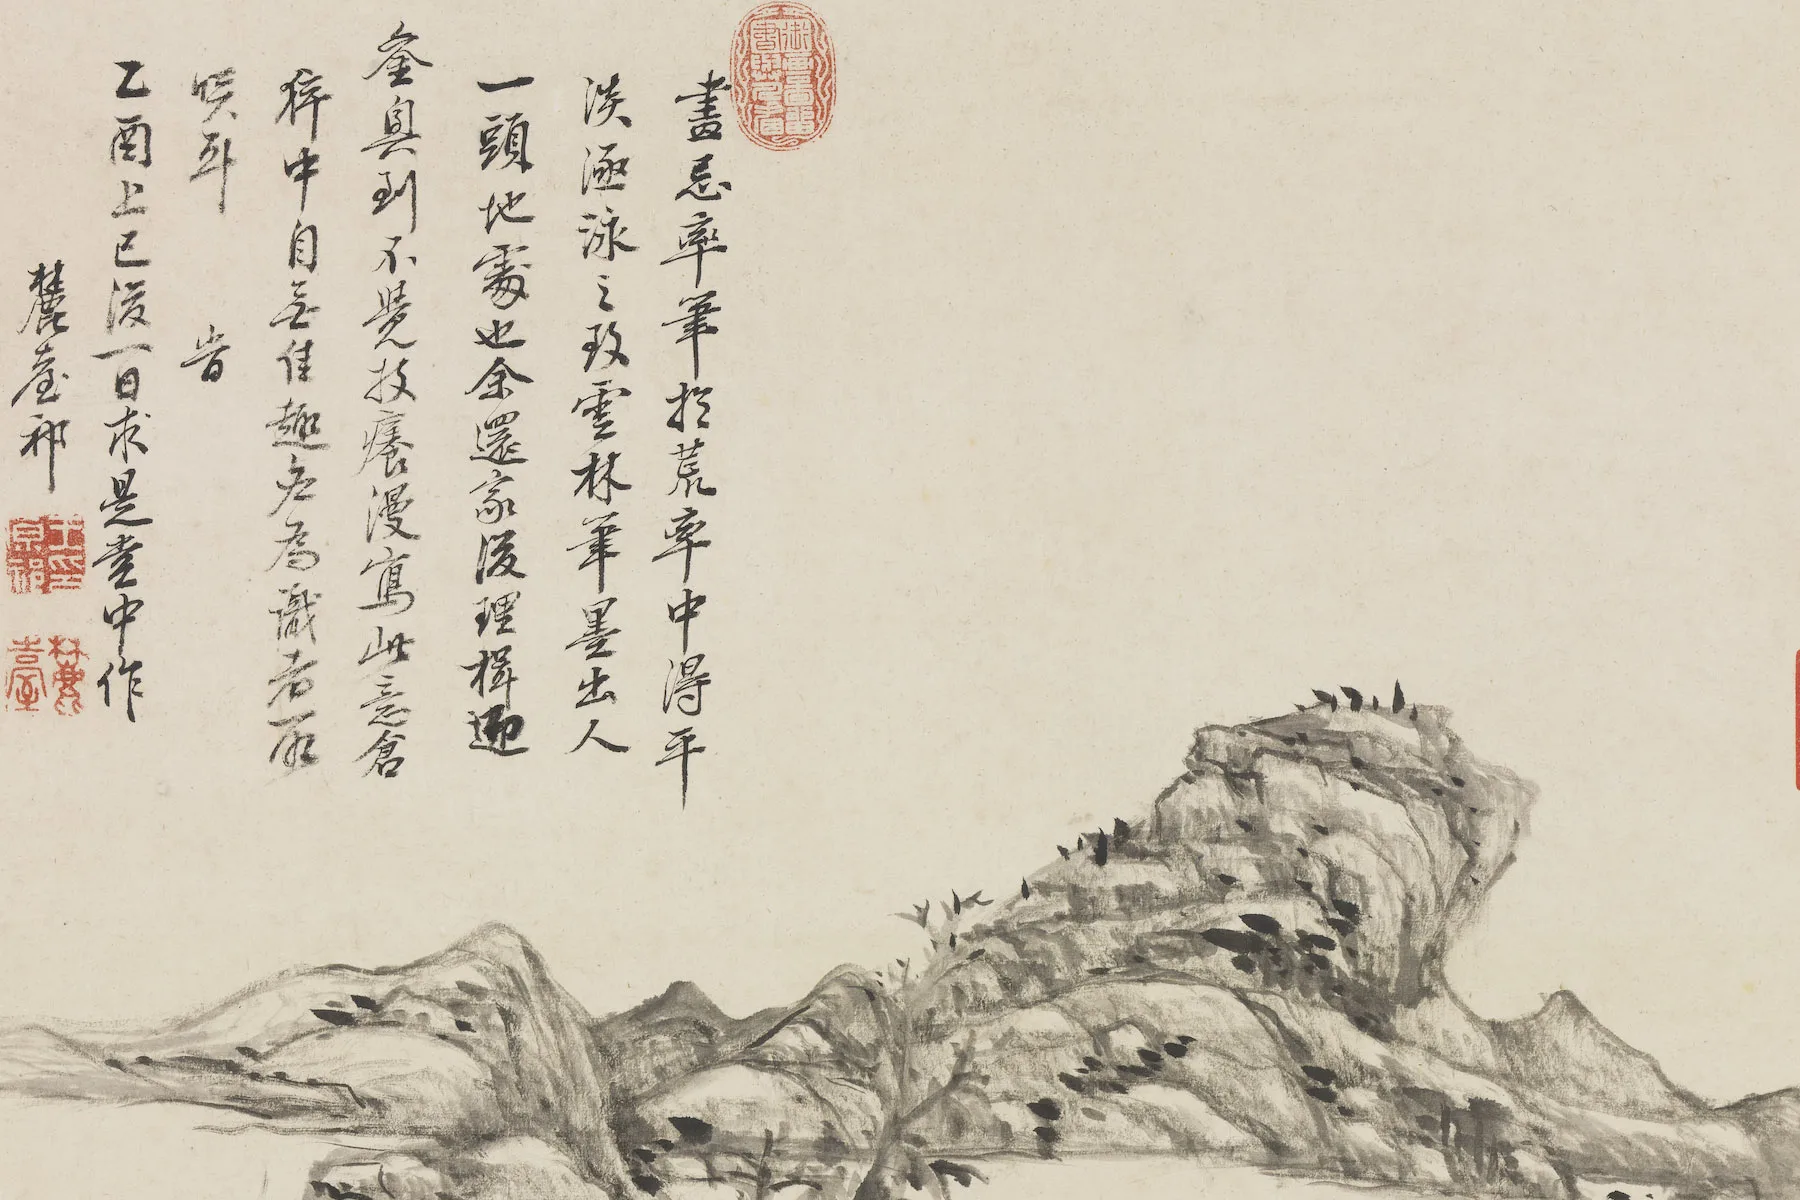 畫忌率筆於荒率中得平
淡涵泳之致雲林筆墨出人
一頭地處也余還家後理楫迎
鑾興到不覺技癢漫寫此意倉
猝中自無佳趣无為識者取
笑耳 昔
乙酉上巳後一日求是堂中作
麓臺祁
王原祁印
麓臺